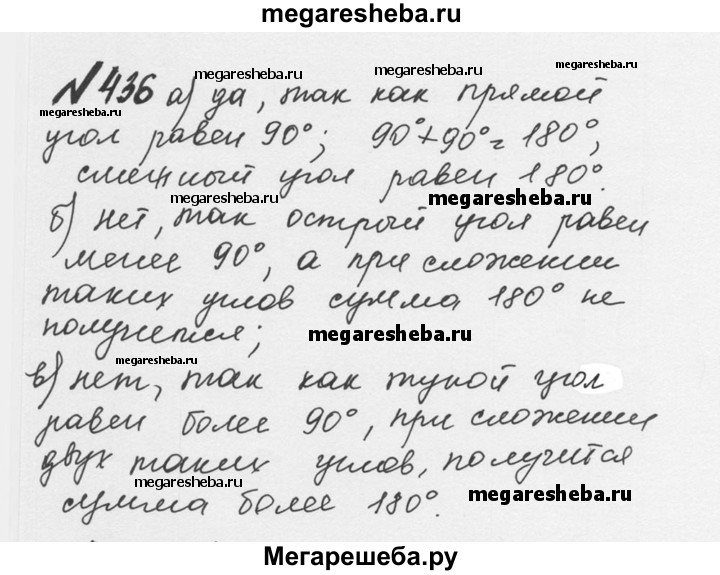 megaresheba.ru
№436 а) да, так как прямой
megaresheba.ru
megaresheba.ru
megaresheba.ru
угол равен 90°; 90°+90°=180°,
megaresheba.ru
megaresheba.ru
смежный угол равен 180°.
megaresheba.ru
megaresheba.ru
б) нет, так острый угол равен
менее 90°, а при сложении
таких углов сумма 180° не
получется;
megaresheba.ru
megaresheba.ru
в) нет, так как тупой угол
равен более 90°, при сложении
двух таких углов, получится
megaresheba.ru
megaresheba.ru
сумма более 180°.
Мегарешеба.ру